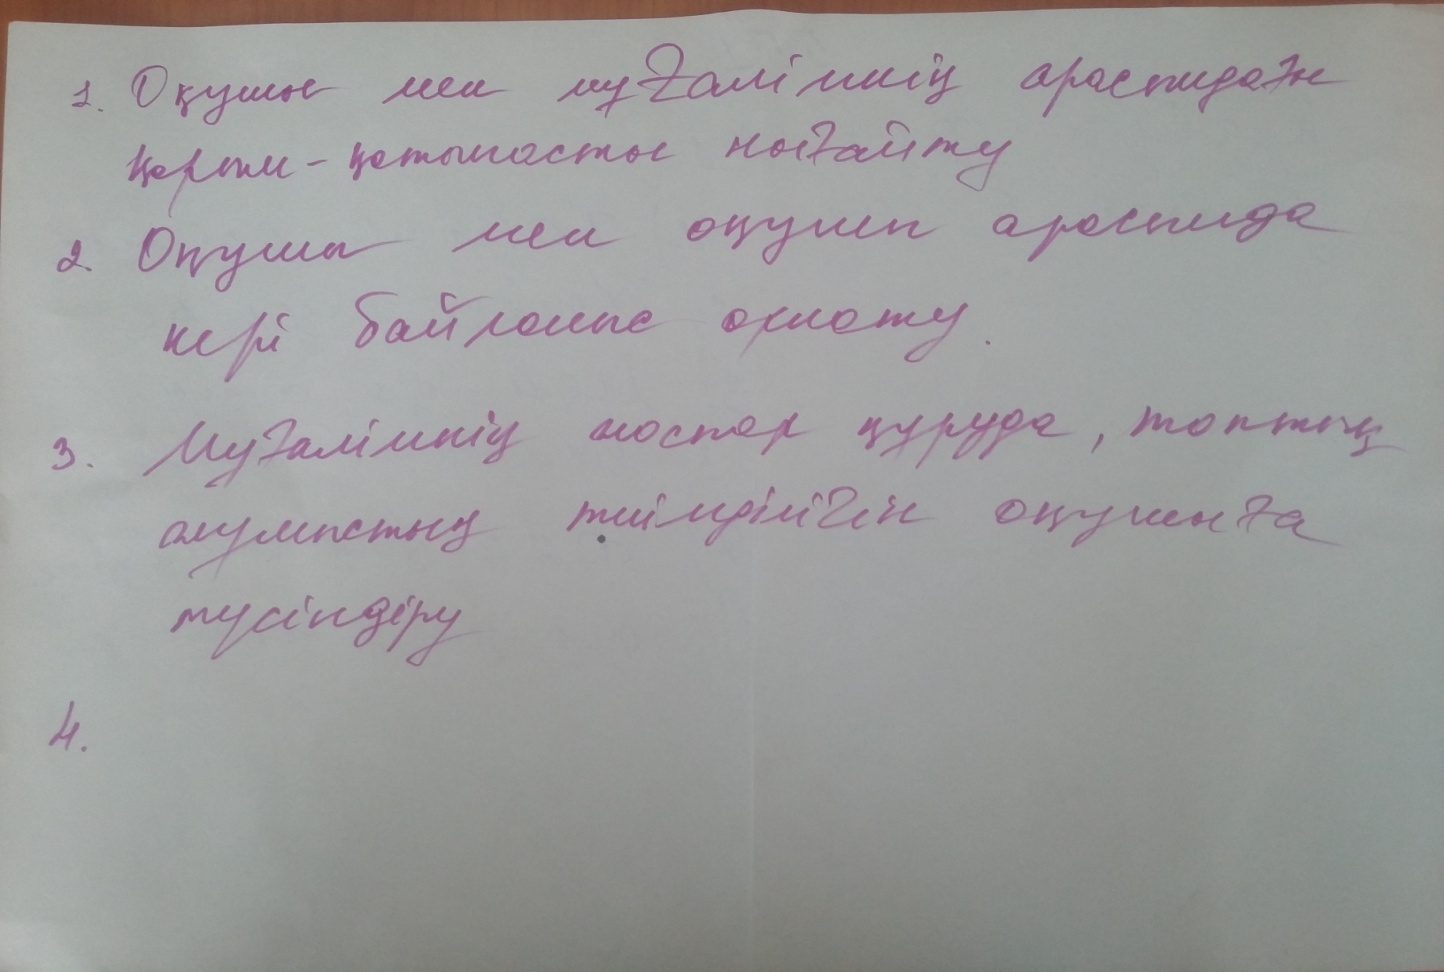 1. Оқушы мен мұғалімнің арасындағы
қарым-қатынасты нығайту
2. Оқушы мен оқушы арасында
кері байланыс орнату.
3. Мұғалімнің жоспар құруда, топтық
жұмыстың тиімділігін оқушыға
түсіндіру
4.